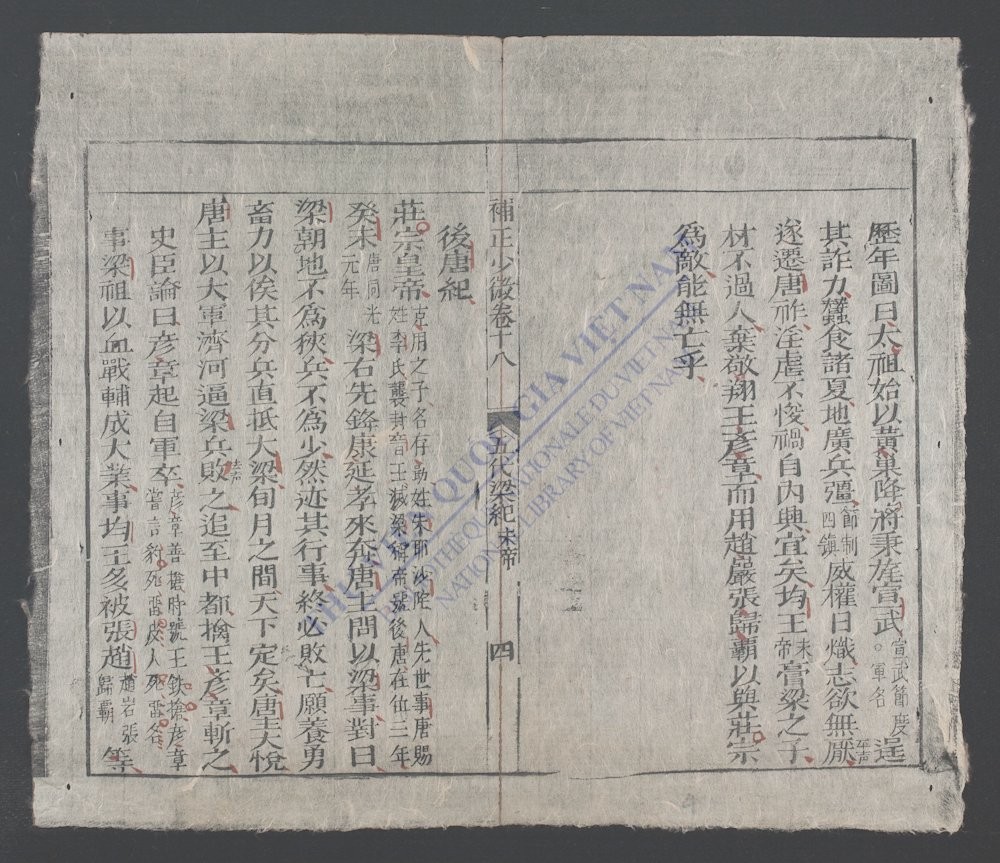 歷年圖曰太祖始以黃巢降將秉旄宣武宣武節度軍名逞
其詐力蠶食諸夏地廣兵彊節制四鎮威權日熾志欲無厭平声
遂遷唐祚淫虐不悛禍自內興宜矣均王末帝膏粱之子
材不過人棄敬翔王彥章而用趙嚴張歸霸以與莊宗
為敵能無亡乎
補正少微卷十八 五代梁紀末帝 四
後唐紀
莊宗皇帝克用之子名存勗姓朱耶沙陀人先世事唐賜姓李氏襲封晉王滅梁稱帝號後唐在位三年
癸未唐同光元年 梁右先鋒康延孝來奔唐主問以梁事對曰
梁朝地不為狹兵不為少然迹其行事終必敗亡願養勇
畜力以俟其分兵直抵大梁旬月之間天下定矣唐主大悅
唐主以大軍濟河逼梁兵敗之追至中都擒王彥章斬之
史臣論曰彥章起自軍卒彥章善戰時號王鉄搶彥章嘗言豹死畱皮人死畱名
事梁祖以血戰輔成大業事均王多被張趙趙岩張歸霸等
THƯ VIỆN QUỐC GIA VIỆT NAM
BIBLIOTHEQUE NATIONALE DU VIET NAM
NATIONAL LIBRARY OF VIET NAM